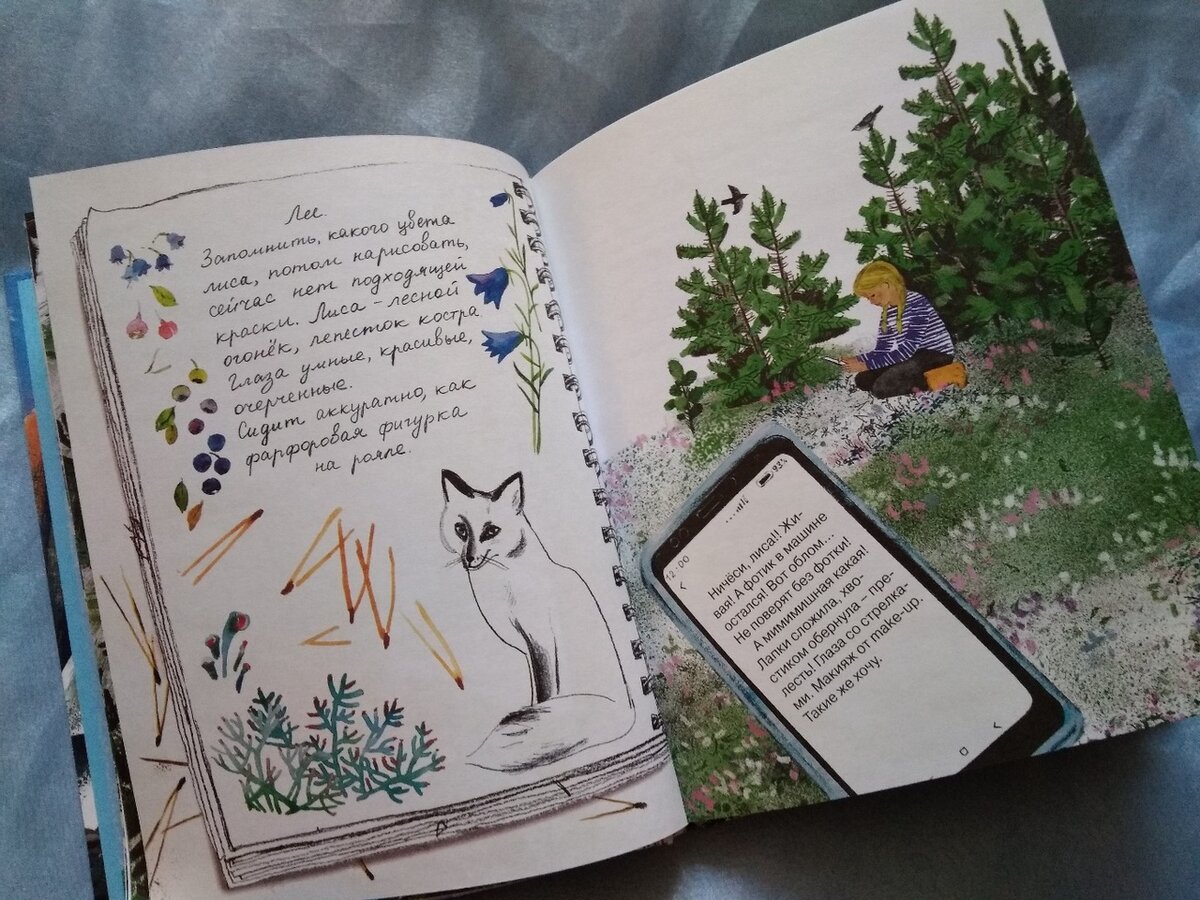 Лес.
Запомнить, какого цвета
лиса, потом нарисовать,
сейчас нет подходящей
краски. Лиса – лесной
огонёк, лепесток костра
Глаза умные, красивые,
очерченные.
Сидит аккуратно, как
фарфоровая фигурка
на рояле.
93%
12:00
Ничёси, лиса!! Жи-
вая! А фотик в машине
остался! Вот облом...
Не поверят без фотки!
А мимимишная какая!
Лапки сложила, хво-
стиком обернула – пре-
лесть! Глаза со стрелка-
ми. Макияж от make-up.
Такие же хочу.